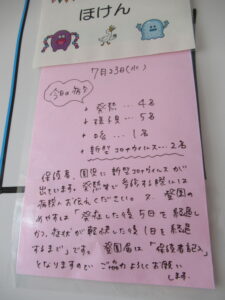 ほけん
7月23日(水)
今日の病欠
発熱…4名
咳…5名
嘔…1名
新型コロナウィルス…2名
保護者、園児に新型コロナウィルスが
出ています。発熱等で受診する際には
病院へお伝えください。
めやすは「発症した後5日を経過し
かつ、症状が軽快した後1日を経過
するまで」です。登園届は「保護者記入」
となりますので ご協力よろしくお願い
します。